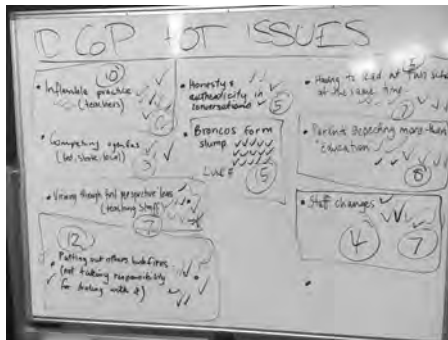 IC CoP HOT ISSUES
10
• Inflamable practice
(teachers)
• Competing agendas
(Nat, State, local)
3
• Viewing though first perspective lens
(teaching staff)
7
12
• Putting out others bushfires
(not taking responsibility
for dealing with it)
• Honesty &
authenticity in
conversations
5
• Broncos form
slump
15
• Having to lead at
at the same time
7
• Parents expecting more than
'Education'
8
• Staff changes
4
7